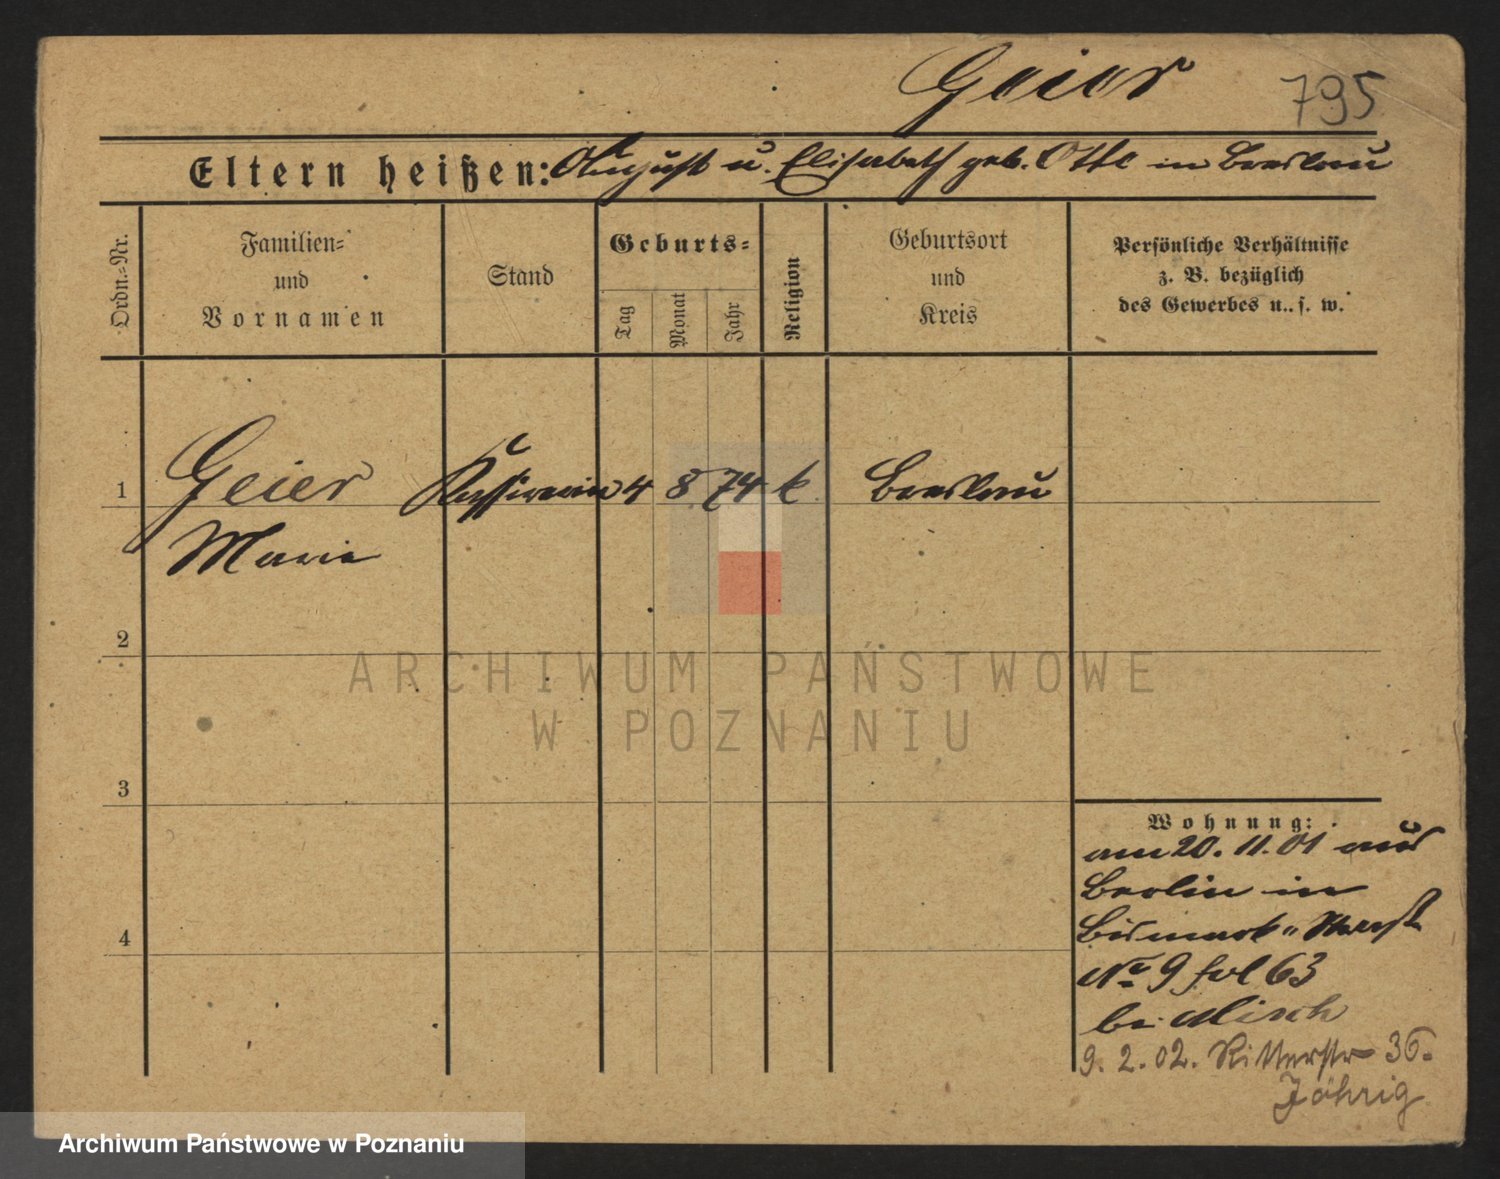 Geier 795
Eltern heißen: August u. Elisabeth geb. Otte in Breslau
Ordn.-Nr.
Familien-
und
Vornamen
Stand
Geburts-
Tag
Monat
Jahr
Religion
Geburtsort
und
Kreis
Persönliche Verhältnisse
z. B. bezüglich
des Gewerbes u. s. w.
1 Geier Kassirerin 4 8 74 k Breslau
Marie
2
3
4
Wohnung:
am 20. 11. 01 aus
Berlin in
Bismark-
No 9 fol 63
bei Misch
9. 2. 02. Ritterstr 36.
Jöhrig
ARCHIWUM PAŃSTWOWE
W POZNANIU
Archiwum Państwowe w Poznaniu